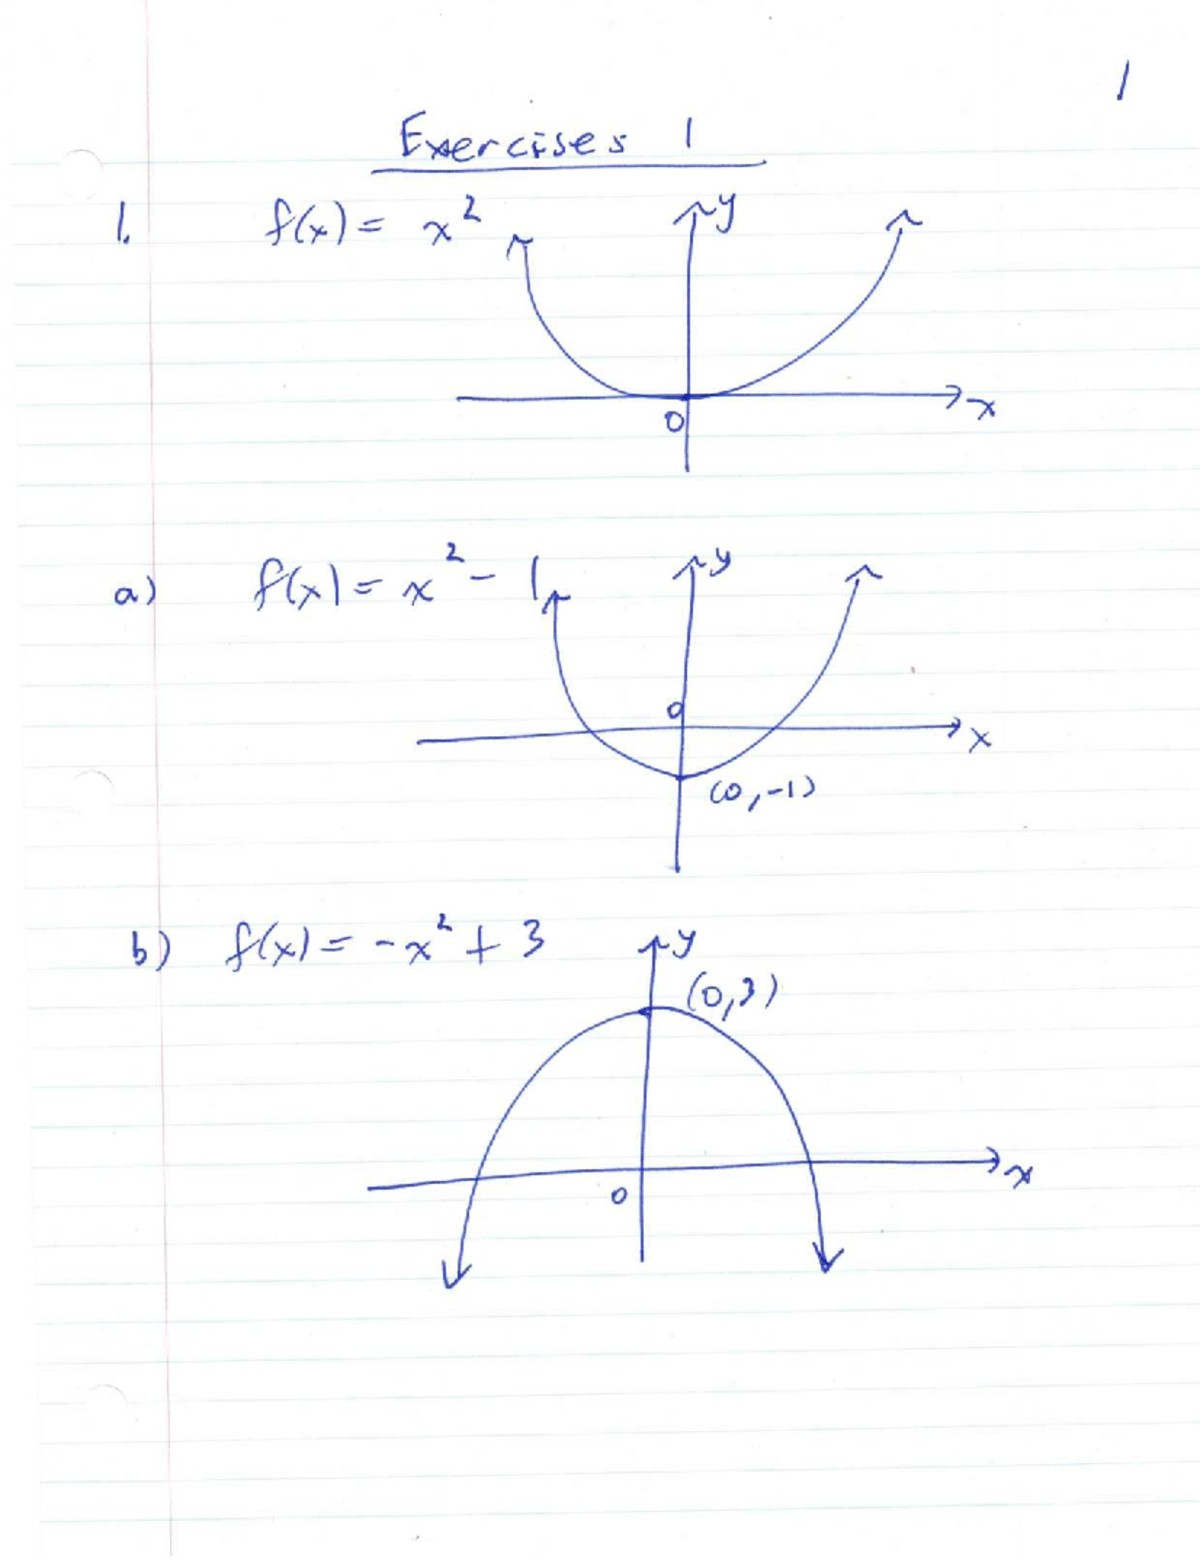 1
Exercises 1
1. f(x) = x²
y
x
0
a) f(x) = x² - 1
y
0
x
(0,-1)
b) f(x) = -x² + 3
y
(0,3)
x
0